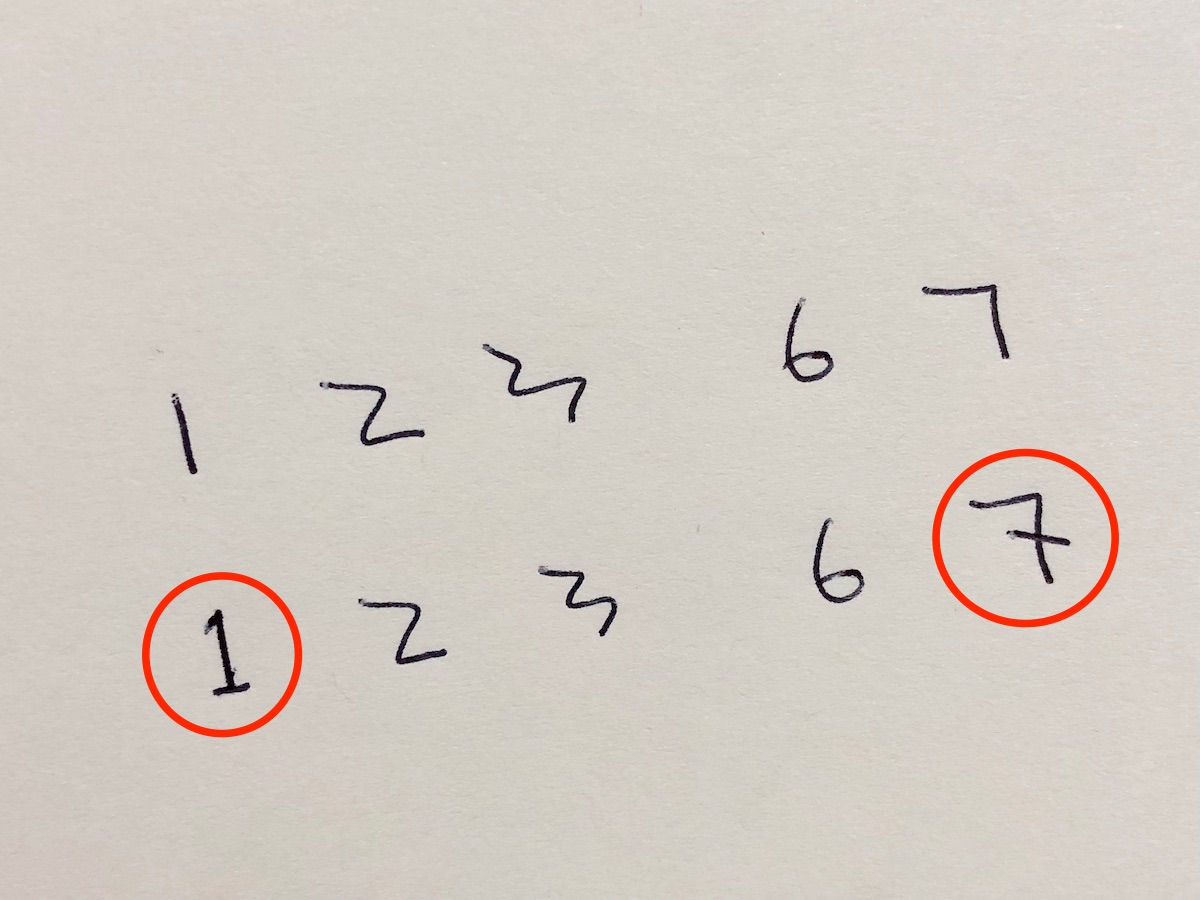 1 2 3 6 7
1 2 3 6 7